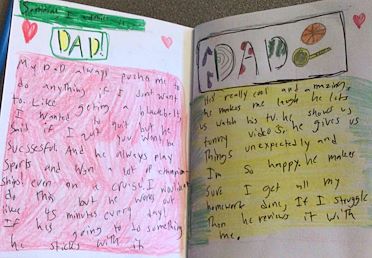 Someone I admire is
DAD!
My Dad always pushe me to
do anything if I dont want
to. Like geting a blackbelt
I wanted to quit but
said if I quit you wont be
successful And he always play
sports and won lot of champion
ships, even on a cruse. I would
do this but he works out
like 45 minutes every day!
If his going to to something
he sticks with it
DAD
His really cool and amazing.
he makes me laugh he lets
us watch his tv. he shows us
funny videos, he gives us
Things unexpectedly and
I'm so happy. he makes
sure I get all my
homework done, If I struggle
Then he reviews it with
me.